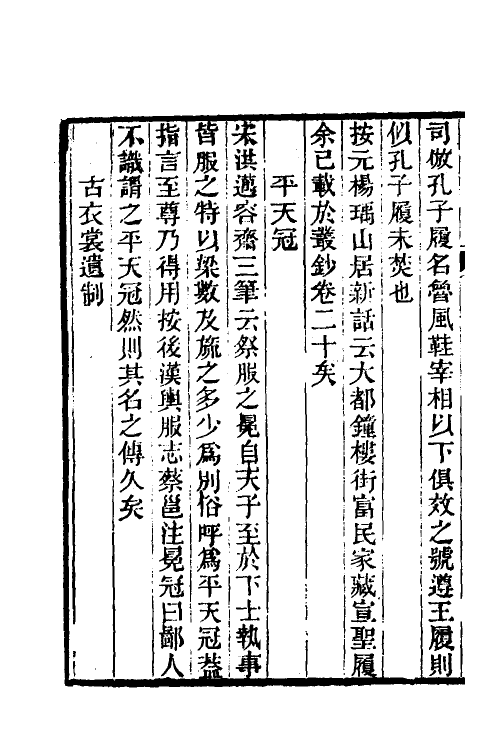 司倣孔子履名魯風鞋宰相以下俱效之號遵王履則
似孔子履未焚也
按元楊瑀山居新話云大都鐘樓街富民家藏宣聖履
余已載於叢鈔卷二十矣
平天冠
宋洪邁容齋三筆云祭服之冕自天子至於下士執事
皆服之特以梁數及旒之多少為別俗呼為平天冠蓋
指言至尊乃得用按後漢輿服志蔡邕注冕冠曰鄙人
不識謂之平天冠然則其名之傳久矣
古衣裳遺制